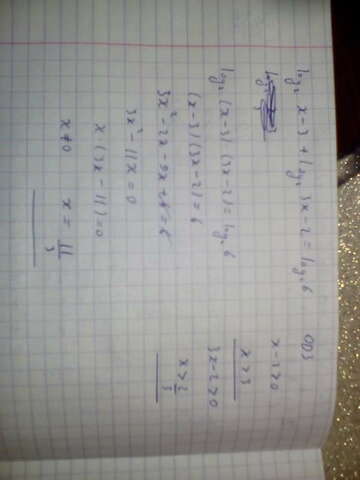 log₂ x-3 + log₂ 3x-2 = log₂ 6
log₂ (x-3)(3x-2) = log₂ 6
(x-3)(3x-2) = 6
3x² - 2x - 9x + 6 = 6
3x² - 11x = 0
x (3x - 11) = 0
x ≠ 0 x = 11/3
ОДЗ
x - 3 > 0
x > 3
3x - 2 > 0
x > 2/3